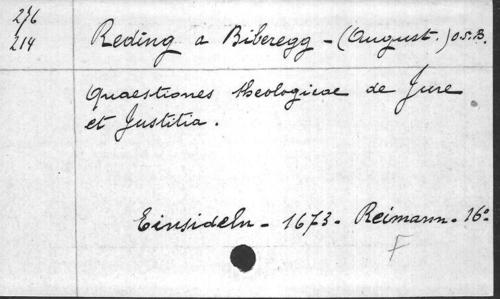 276
214
Reding a Biberegg - (August.) O.S.B.
Quaestiones theologicae de Jure
et Justitia.
Einsideln - 1673 - Reimann - 16°
F